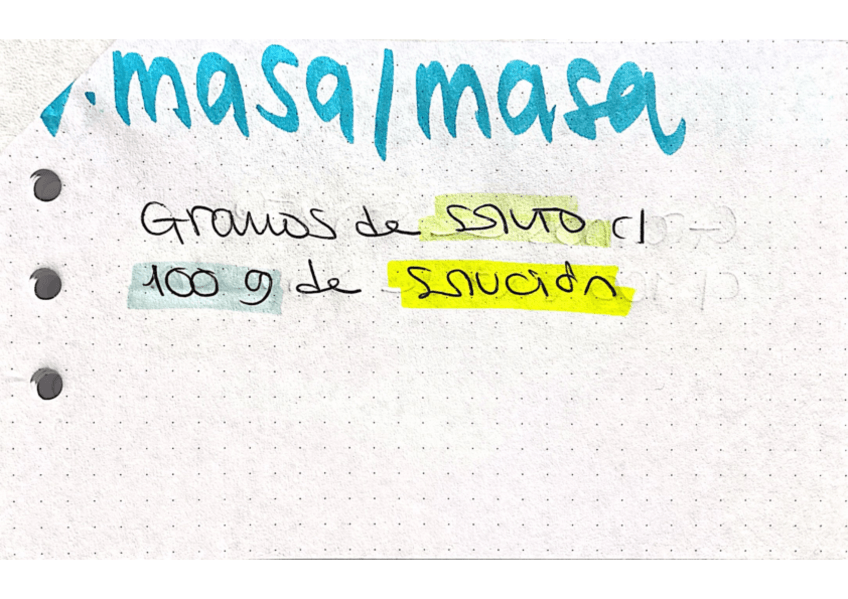 masa/masa
Gramos de soluto c/
100 g de solución